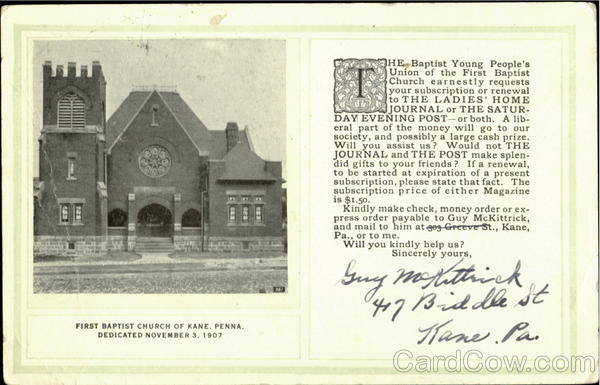 FIRST BAPTIST CHURCH OF KANE, PENNA.
DEDICATED NOVEMBER 3, 1907
THE Baptist Young People's
Union of the First Baptist
Church earnestly requests
your subscription or renewal
to THE LADIES' HOME
JOURNAL or THE SATUR-
DAY EVENING POST—or both. A lib-
eral part of the money will go to our
society, and possibly a large cash prize.
Will you assist us? Would not THE
JOURNAL and THE POST make splen-
did gifts to your friends? If a renewal,
to be started at expiration of a present
subscription, please state that fact. The
subscription price of either Magazine
is $1.50.
Kindly make check, money order or ex-
press order payable to Guy McKittrick,
and mail to him at 303 Greeve St., Kane,
Pa., or to me.
Will you kindly help us?
Sincerely yours,
Guy McKittrick
417 Biddle St
Kane. Pa.
CardCow.com